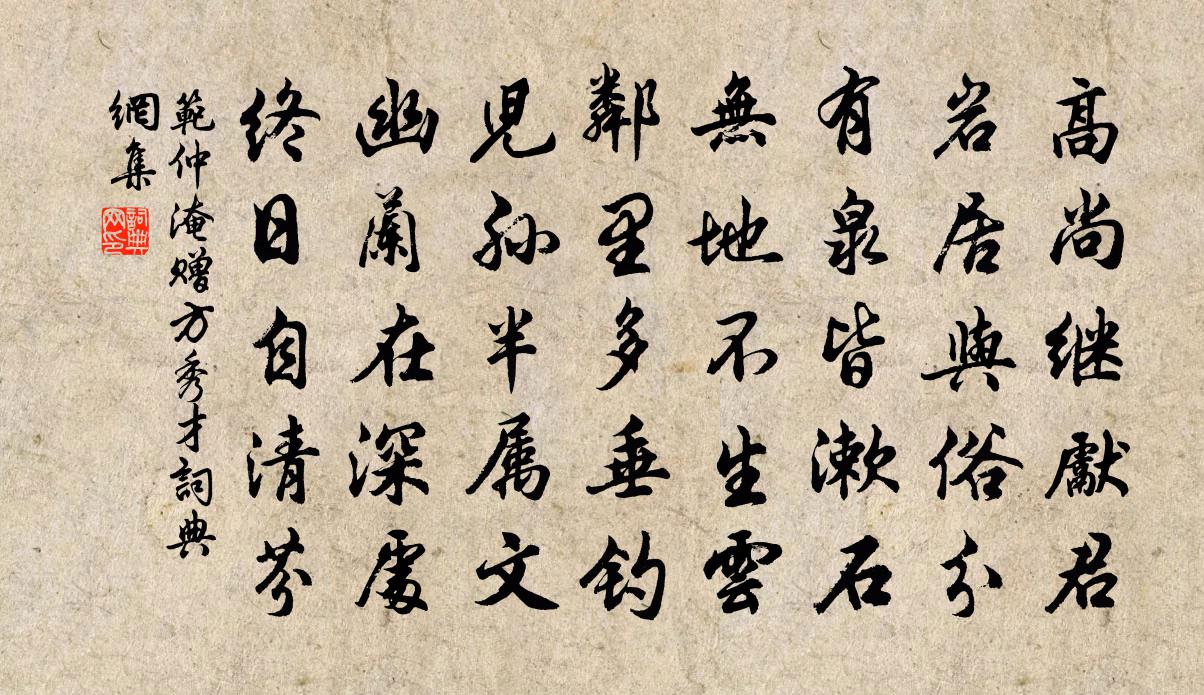 高尚继獻君
岩居與俗分
有泉皆漱石
無地不生雲
鄰里多垂钓
児孙半属文
幽蘭在深處
终日自清芬
範仲淹赠方秀才詞典
網集
詞典
网印